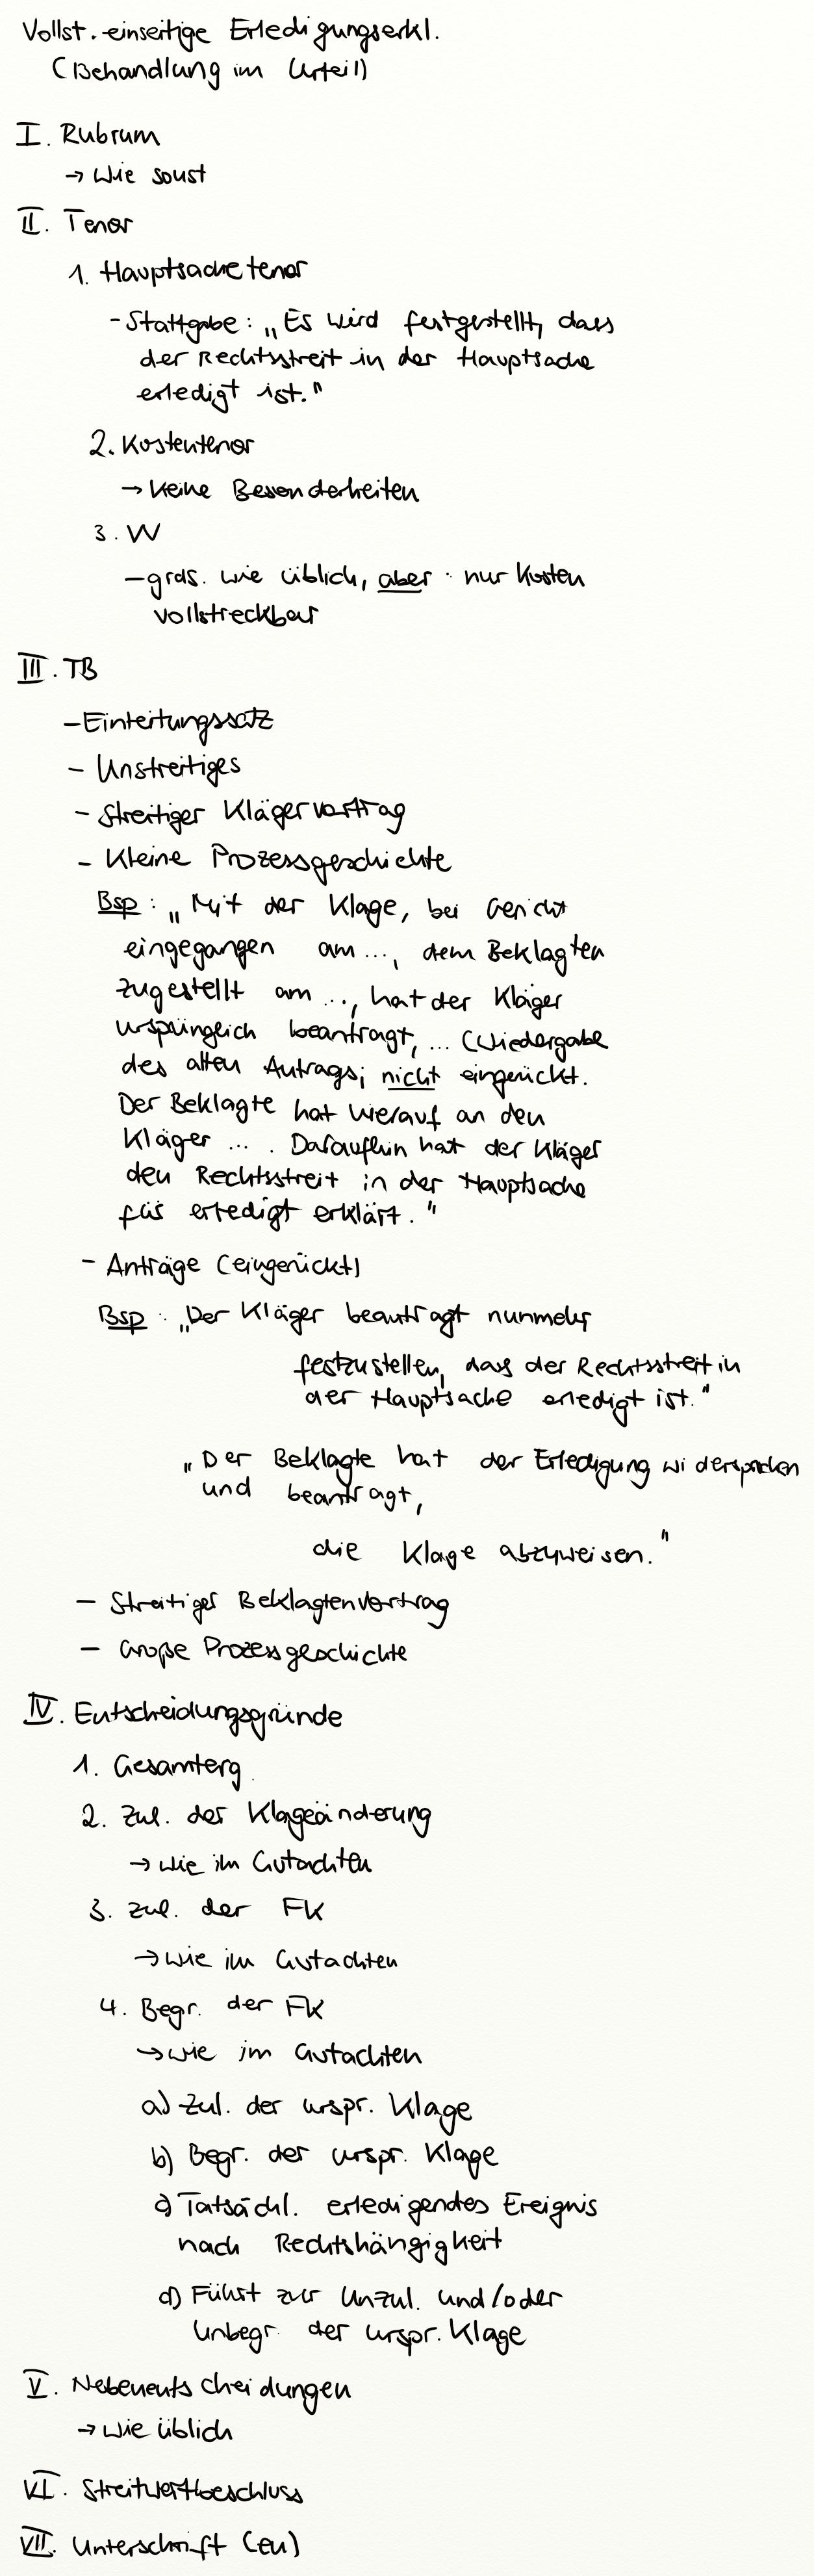 Vollst. einseitige Erledigungserkl.
(Behandlung im Urteil)
I. Rubrum
→ wie sonst
II. Tenor
1. Hauptsachetenor
- Stattgabe: „Es wird festgestellt, dass
der Rechtsstreit in der Hauptsache
erledigt ist."
2. Kostentenor
→ keine Besonderheiten
3. VV
- grds. wie üblich, aber: nur Kosten
vollstreckbar
III. TB
- Einleitungssatz
- Unstreitiges
- Streitiger Klägervortrag
- Kleine Prozessgeschichte
Bsp: „Mit der Klage, bei Gericht
eingegangen am ..., dem Beklagten
zugestellt am ..., hat der Kläger
ursprünglich beantragt, ... (Wiedergabe
des alten Antrags; nicht eingerückt.
Der Beklagte hat hierauf an den
Kläger ... . Daraufhin hat der Kläger
den Rechtsstreit in der Hauptsache
für erledigt erklärt."
- Anträge (eingerückt)
Bsp: „Der Kläger beantragt nunmehr
festzustellen, dass der Rechtsstreit in
der Hauptsache erledigt ist."
„Der Beklagte hat der Erledigung widersprochen
und beantragt,
die Klage abzuweisen."
- Streitiger Beklagtenvortrag
- Große Prozessgeschichte
IV. Entscheidungsgründe
1. Gesamterg.
2. Zul. der Klageänderung
→ wie im Gutachten
3. Zul. der FK
→ wie im Gutachten
4. Begr. der FK
→ wie im Gutachten
a) Zul. der urspr. Klage
b) Begr. der urspr. Klage
c) Tatsächl. erledigendes Ereignis
nach Rechtshängigkeit
d) Führt zur Unzul. und/oder
Unbegr. der urspr. Klage
V. Nebenentscheidungen
→ wie üblich
VI. Streitwertbeschluss
VII. Unterschrift (en)